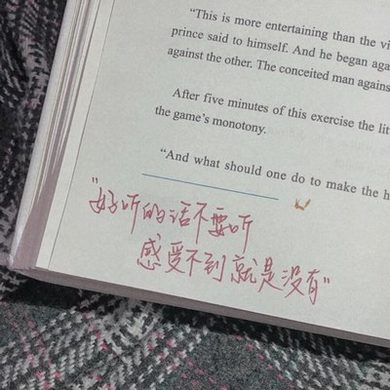 "This is more entertaining than the vi
prince said to himself. And he began aga
against the other. The conceited man against
After five minutes of this exercise the lit
the game's monotony.
"And what should one do to make the h
"好听的话不要听
感受不到就是没有"